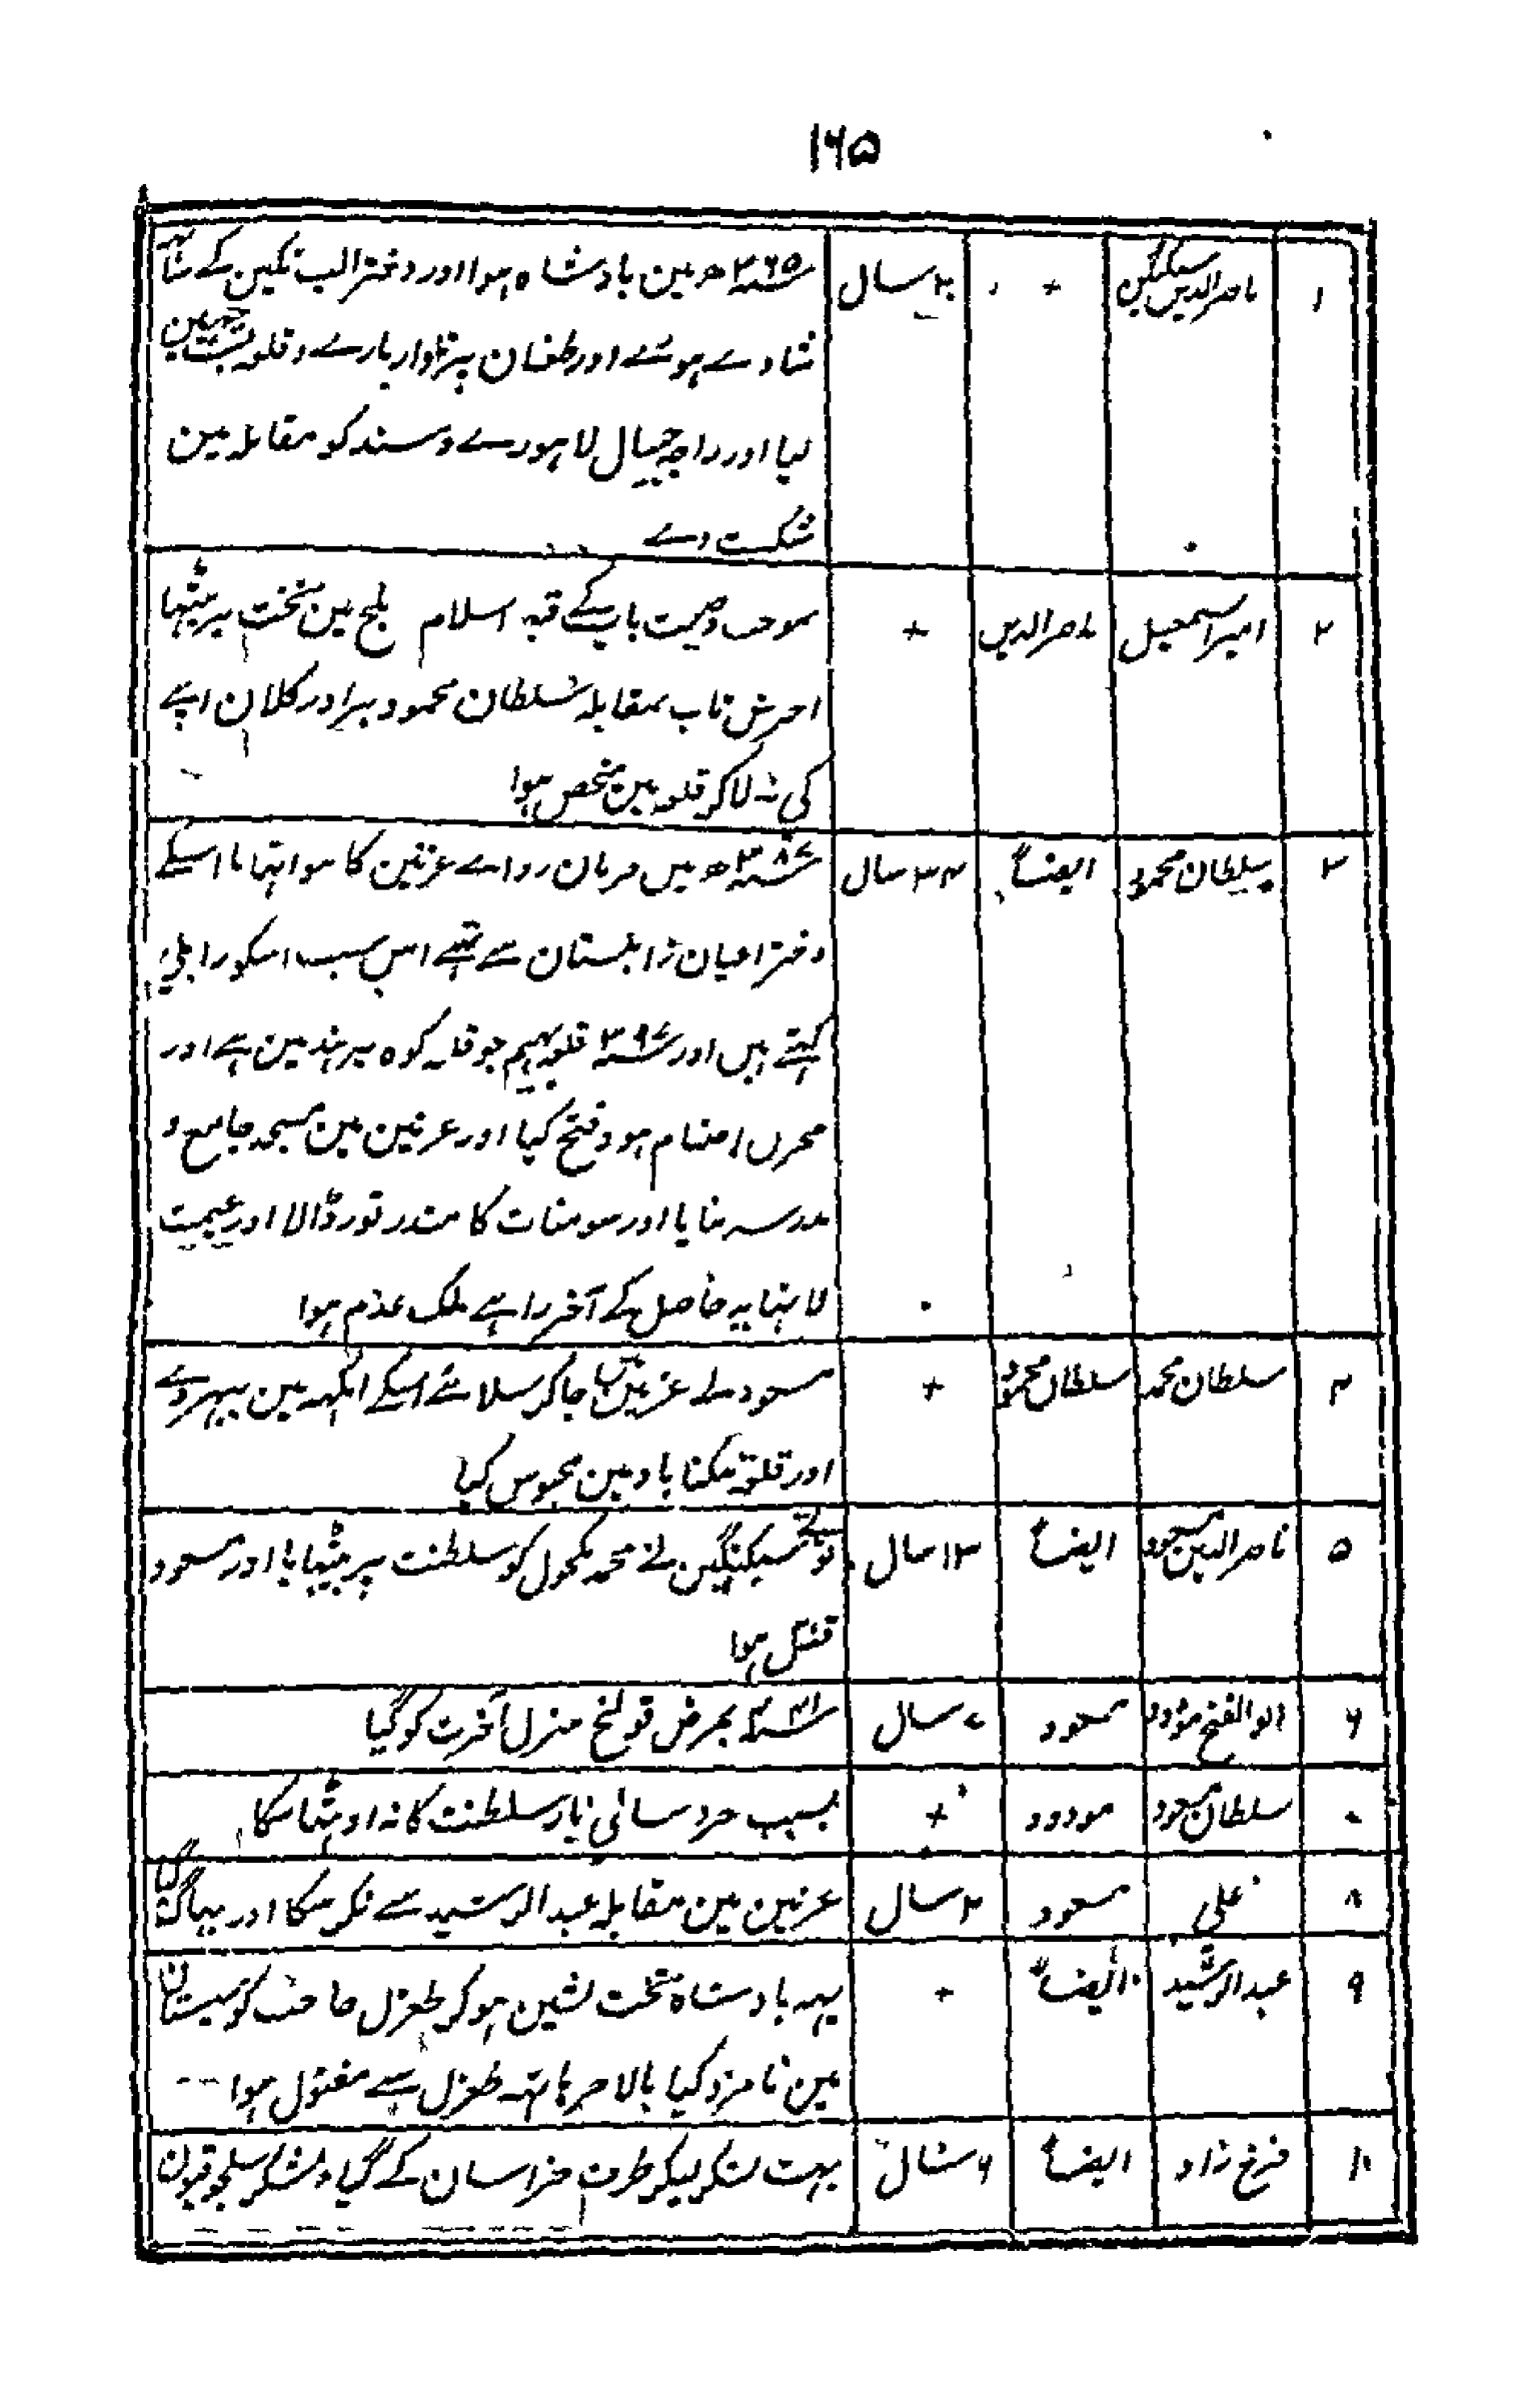 ۱۶۵
۱ ناصرالدین سبکتگین + ۲۰ سال سنہ ۳۶۵ھ مین بادشاہ ہوا اور دختر الب تگین کے ساتہہ
شادے ہوئے اور طغان پر تلوار مارے و قلعہ بست چہین
لیا اور راجہ جیپال لاہورے و سند کو مقابلہ مین
شکست دے
۲ امیر اسمعیل ناصرالدین + بموجب وصیت باپ کے قبہ اسلام بلخ مین تخت پر بیٹہا
آخرش تاب بمقابلہ سلطان محمود برادر کلان اپنے
کی نہ لاکر قلعہ مین متحصن ہوا
۳ سلطان محمود ایضاً ۳۴ سال سنہ ۳۸۷ھ میں فرمان رواے غزنین کا ہوا تہا ما اسکے
دختر اعیان زابلستان سے تہے اس سبب اسکو زابلے
کہتے ہیں اور سنہ ۳۹۷ قلعہ بہیم جو قلہ کوہ سرہند مین ہے اور
مخزن اصنام ہنود فتح کیا اور غزنین مین مسجد جامع و
مدرسہ بنایا اور سومنات کا مندر توڑ ڈالا اور غنیمت
لا نہایہ حاصل کے آخر راہے ملک عدم ہوا
۴ سلطان محمد سلطان محمود + مسعود نے غزنین میں جاکر سلائے اسکے انکہہ مین پہیر دے
اور قلعہ تکناباد مین محبوس کیا
۵ ناصرالدین مسعود ایضاً ۱۳ سال سبکتگین نے محمد مکحول کو سلطنت پر بیٹہایا اور مسعود
قتل ہوا
۶ ابوالفتح مودود مسعود ۷ سال سنہ ۴۴۱ بمرض قولنج منزل آخرت کو گیا
۷ سلطان مسعود مودود + بسبب خرد سالی بار سلطنت کا نہ اوٹہا سکا
۸ علی مسعود ۲ سال غزنین مین مقابلہ عبدالرشید سے نکرسکا اور بہاگ گیا
۹ عبدالرشید ایضاً + یہہ بادشاہ تخت نشین ہوکر طغرل حاجب کو سیستان
مین نامزد کیا بالاخر ہاتہہ طغرل سے مقتول ہوا
۱۰ فرخ زاد ایضاً ۶ سال بہت لشکر لیکر طرف خراسان کے گیا و لشکر سلجوقیون